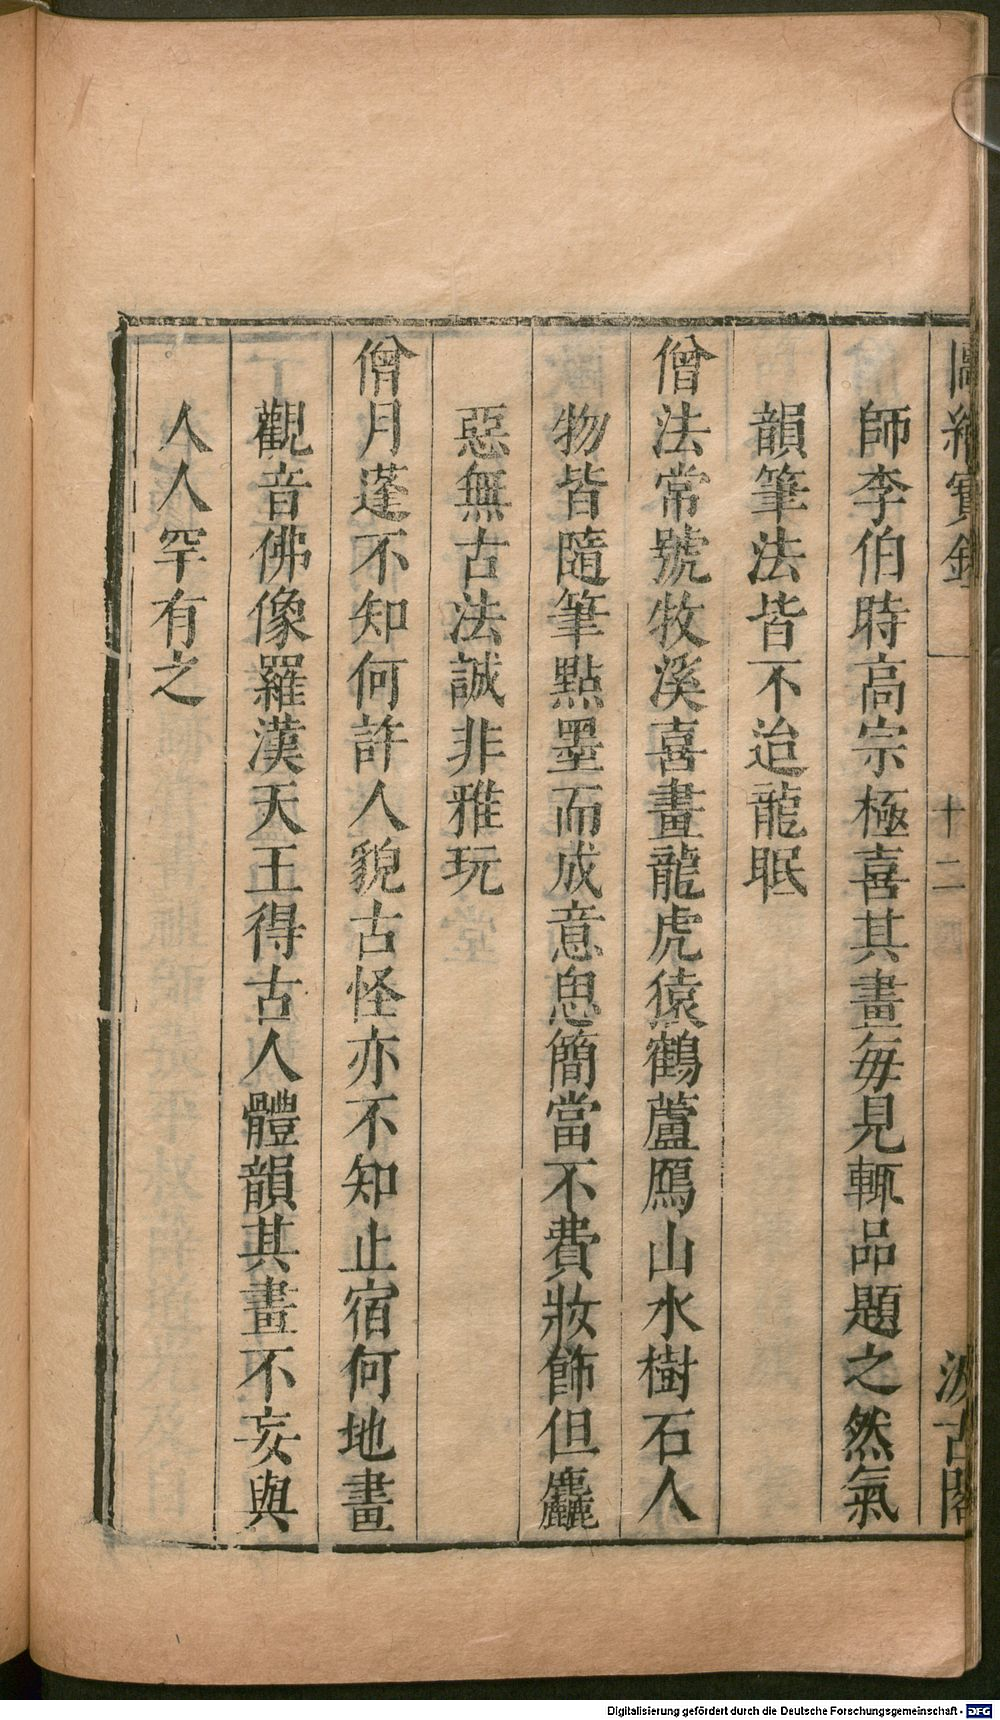 圖繪寶鑑
十二
汲古閣
師李伯時高宗極喜其畫每見輒品題之然氣
韻筆法皆不迨龍眠
僧法常號牧溪喜畫龍虎猿鶴蘆鴈山水樹石人
物皆隨筆點墨而成意思簡當不費妝飾但麤
惡無古法誠非雅玩
僧月蓬不知何許人貌古怪亦不知止宿何地畫
觀音佛像羅漢天王得古人體韻其畫不妄與
人人罕有之
Digitalisierung gefördert durch die Deutsche Forschungsgemeinschaft - DFG